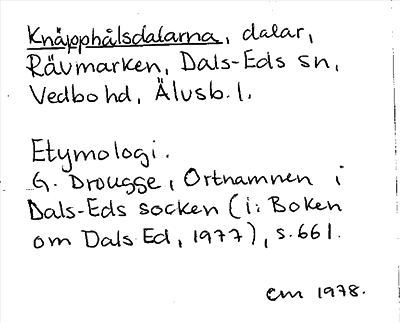 Knåpphålsdalarna, dalar,
Rävmarken, Dals-Eds sn,
Vedbo hd, Älvsb. l.
Etymologi.
G. Drougge, Ortnamnen i
Dals-Eds socken (i: Boken
om Dals Ed, 1977), s. 661.
cm 1978.